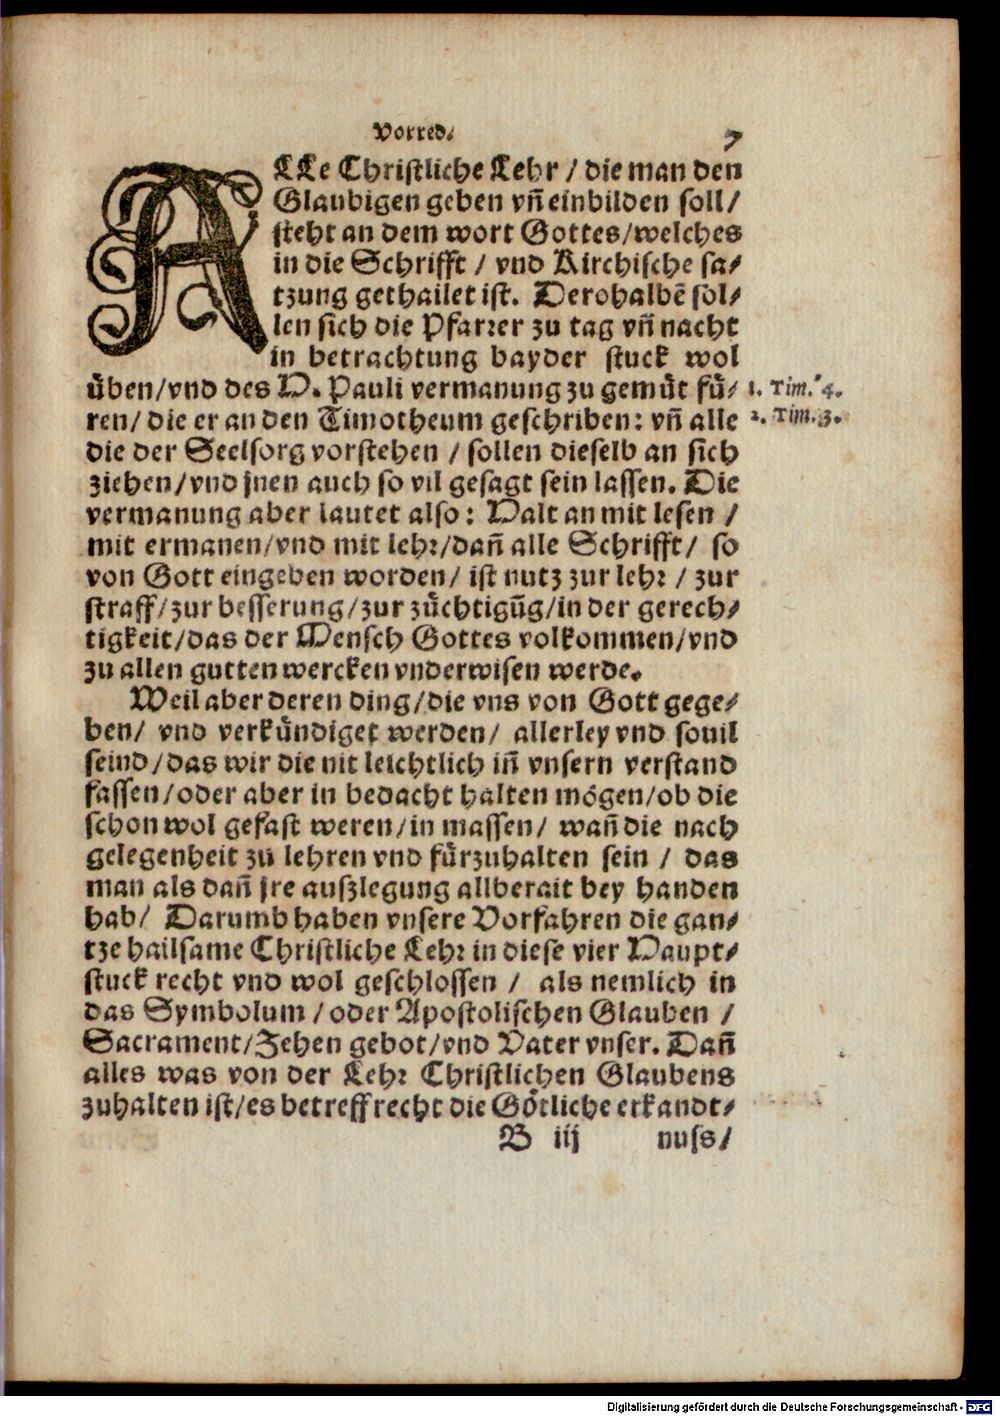 Vorred. 7
ALLe Christliche Lehr / die man den
Glaubigen geben vñ einbilden soll /
steht an dem wort Gottes / welches
in die Schrifft / vnd Kirchische sa⸗
tzung gethailet ist. Derohalbē sol⸗
len sich die Pfarrer zu tag vñ nacht
in betrachtung bayder stuck wol
üben / vnd des H. Pauli vermanung zu gemüt fü⸗ 1. Tim. 4.
ren / die er an den Timotheum geschriben: vñ alle 2. Tim. 3.
die der Seelsorg vorstehen / sollen dieselb an sich
ziehen / vnd jnen auch so vil gesagt sein lassen. Die
vermanung aber lautet also: Halt an mit lesen /
mit ermanen / vnd mit lehr / dañ alle Schrifft / so
von Gott eingeben worden / ist nutz zur lehr / zur
straff / zur besserung / zur züchtigūg / in der gerech⸗
tigkeit / das der Mensch Gottes volkommen / vnd
zu allen gutten wercken vnderwisen werde.
Weil aber deren ding / die vns von Gott gege⸗
ben / vnd verkündiget werden / allerley vnd souil
seind / das wir die nit leichtlich iñ vnsern verstand
fassen / oder aber in bedacht halten mögen / ob die
schon wol gefast weren / in massen / wañ die nach
gelegenheit zu lehren vnd fürzuhalten sein / das
man als dañ jre auszlegung allberait bey handen
hab / Darumb haben vnsere Vorfahren die gan⸗
tze hailsame Christliche Lehr in diese vier Haupt⸗
stuck recht vnd wol geschlossen / als nemlich in
das Symbolum / oder Apostolischen Glauben /
Sacrament / Zehen gebot / vnd Vater vnser. Dañ
alles was von der Lehr Christlichen Glaubens
zuhalten ist / es betreff recht die Götliche erkandt⸗
B iij nuss /
Digitalisierung gefördert durch die Deutsche Forschungsgemeinschaft - DFG